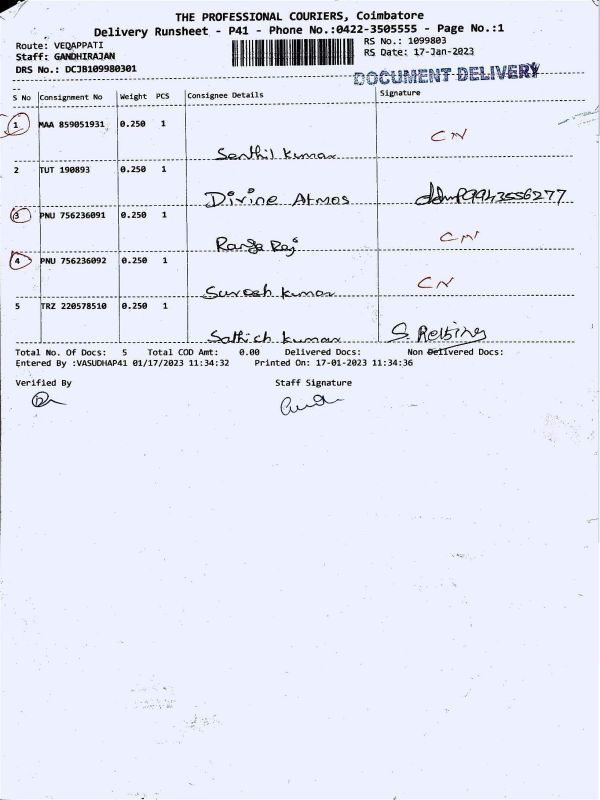 THE PROFESSIONAL COURIERS, Coimbatore
Delivery Runsheet - P41 - Phone No.:0422-3505555 - Page No.:1
Route: VEDAPPATI
RS No.: 1099803
Staff: GANDHIRAJAN
RS Date: 17-Jan-2023
DRS No.: DCJB109980301
DOCUMENT DELIVERY
S No Consignment No Weight PCS Consignee Details Signature
1 MAA 859051931 0.250 1
Senthil kumar CN
2 TUT 190893 0.250 1
Divine Atmos 9943556277
3 PNU 756236091 0.250 1
Ranga Raj CN
4 PNU 756236092 0.250 1
Suresh kumar CN
5 TRZ 220578510 0.250 1
Sathish kumar S.
Total No. Of Docs: 5 Total COD Amt: 0.00 Delivered Docs: Non Delivered Docs:
Entered By :VASUDHAP41 01/17/2023 11:34:32 Printed On: 17-01-2023 11:34:36
Verified By Staff Signature